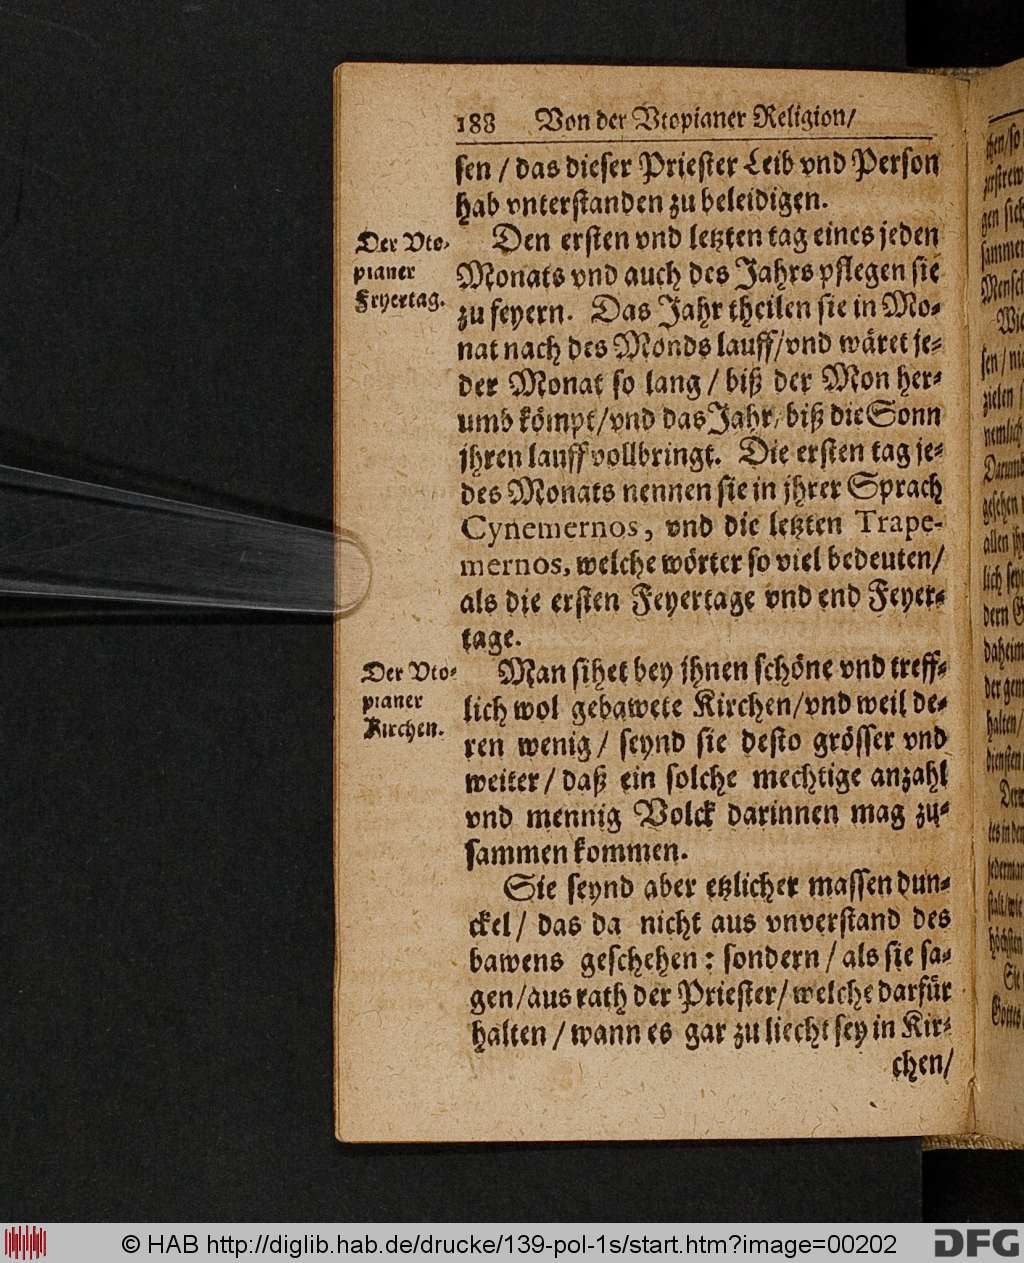 188 Von der Vtopianer Religion/
sen / das dieser Priester Leib vnd Person
hab vnterstanden zu beleidigen.
Der Vto-
pianer
Feyertag.
Den ersten vnd letzten tag eines jeden
Monats vnd auch des Jahrs pflegen sie
zu feyern. Das Jahr theilen sie in Mo-
nat nach des Monds lauff/vnd wäret je-
der Monat so lang / biß der Mon her-
umb kömpt/vnd das Jahr/ biß die Sonn
jhren lauff vollbringt. Die ersten tag je-
des Monats nennen sie in jhrer Sprach
Cynemernos, vnd die letzten Trape-
mernos, welche wörter so viel bedeuten/
als die ersten Feyertage vnd end Feyer-
tage.
Der Vto-
pianer
Kirchen.
Man sihet bey jhnen schöne vnd treff-
lich wol gebawete Kirchen/vnd weil de-
ren wenig / seynd sie desto grösser vnd
weiter / daß ein solche mechtige anzahl
vnd mennig Volck darinnen mag zu-
sammen kommen.
Sie seynd aber etzlicher massen dun-
ckel / das da nicht aus vnverstand des
bawens geschehen : sondern / als sie sa-
gen/aus rath der Priester/ welche darfür
halten / wann es gar zu liecht sey in Kir-
chen/
© HAB http://diglib.hab.de/drucke/139-pol-1s/start.htm?image=00202
DFG